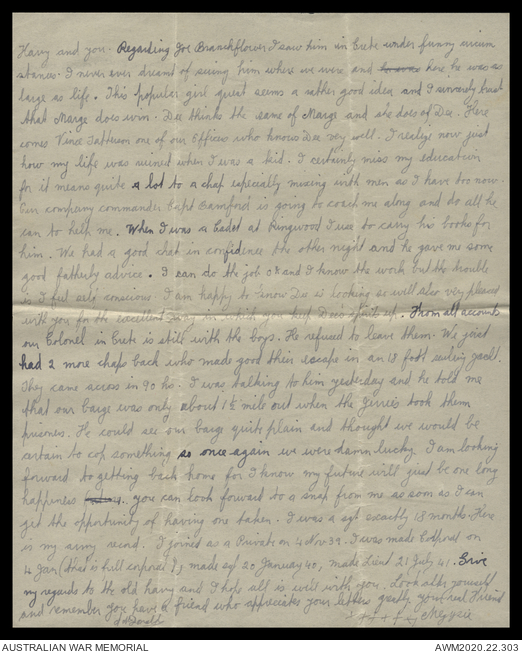 Harry and you. Regarding Joe Branchflower I saw him in Crete under funny circum
stances. I never ever dreamt of seeing him where we were and here he was as
large as life. This popular girl quest seems a rather good idea and I sincerely trust
that Marge does win. Dee thinks the same of Marge and she does of Dee. Here
comes Vince Tatterson one of our Officers who knows Dee very well. I realize now just
how my life was ruined when I was a kid. I certainly miss my education
for it means quite a lot to a chap especially mixing with men as I have too now.
Our company commander Capt Bamford is going to coach me along and do all he
can to help me. When I was a Cadet at Ringwood I use to carry his books for
him. We had a good chat in confidence the other night and he gave me some
good fatherly advice. I can do the job ok and I know the work but the trouble
is I feel self conscious. I am happy to know Dee is looking so well also very pleased
with you for the excellent way in which you kept Dees spirit up. From all accounts
our Colonel in Crete is still with the boys. He refused to leave them. We just
had 2 more chaps back who made good their escape in an 18 foot sailing yacht.
They came across in 90 hrs. I was talking to him yesterday and he told me
that our barge was only about 1½ mile out when the Jerries took them
prisoners. He could see our barge quite plain and thought we would be
certain to cop something so once again we were damn lucky. I am looking
forward to getting back home for I know my future will just be one long
happiness you can look forward to a snap from me as soon as I can
get the opportunity of having one taken. I was a sgt exactly 18 months. Here
is my army record. I joined as a Private on 4 Nov 39. I was made Corporal on
4 Jan (that is full corporal), made sgt 20 January 40, made Lieut 21 July 41. Give
my regards to the old harry and I hope all is well with you. Look after yourself
and remember you have a friend who appreciates your letters greatly your real Friend
AUSTRALIAN WAR MEMORIAL
AWM2020.22.303